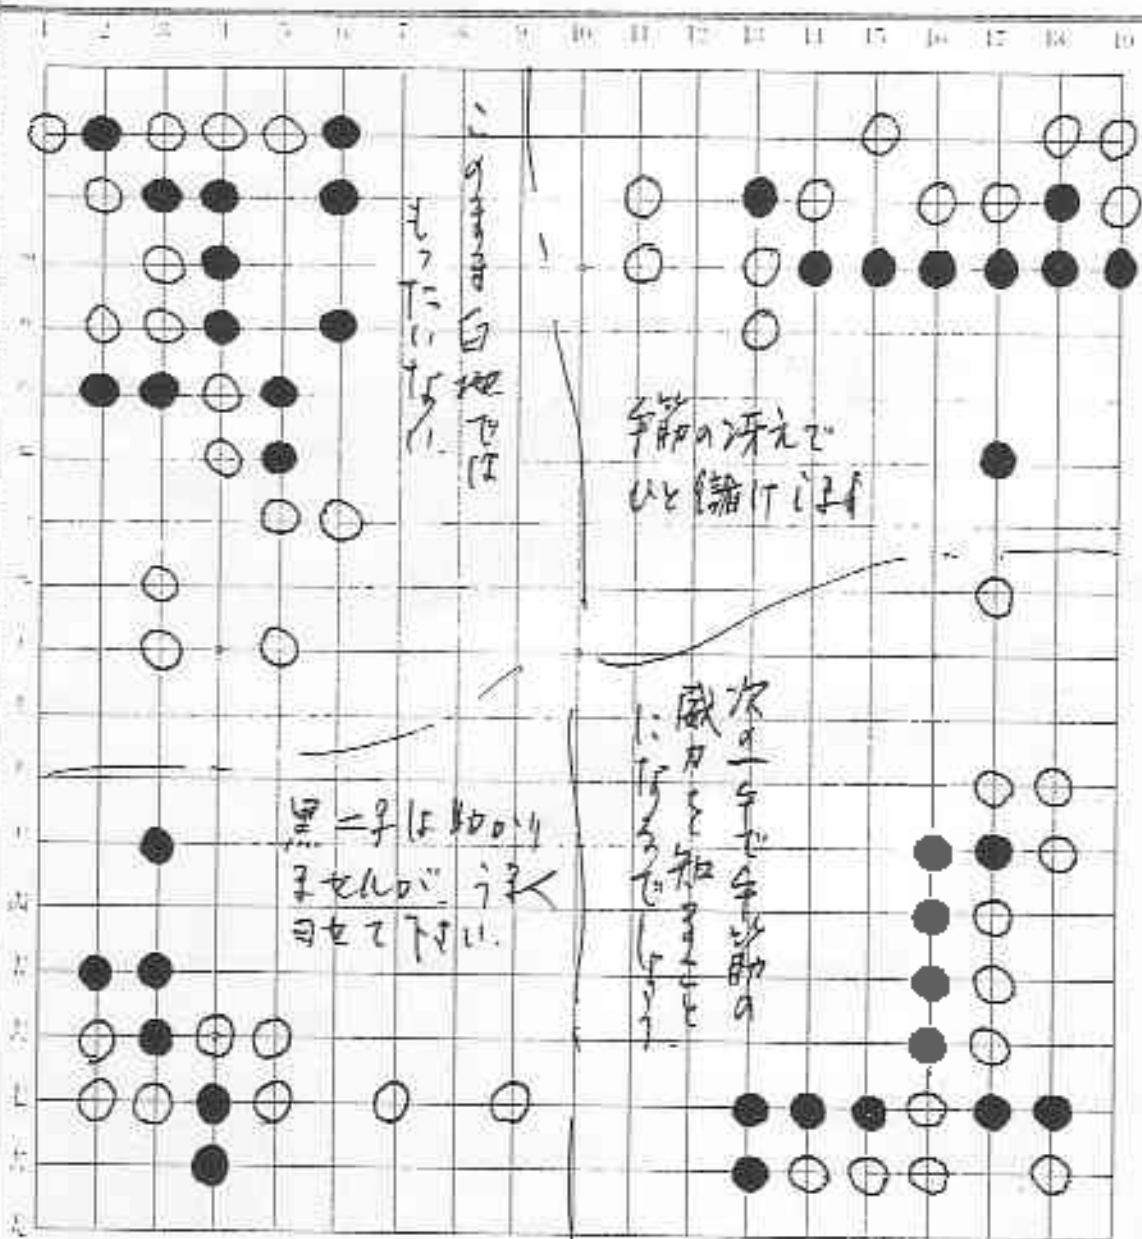 1 2 3 4 5 6 7 8 9 10 11 12 13 14 15 16 17 18 19
このまま白地では
もったいない.
手筋の冴えで
ひと儲けします
黒二子は助かり
ませんが、うまく
召せて下さい.
次の一手で手筋の
威力を知ること
になるでしょう.